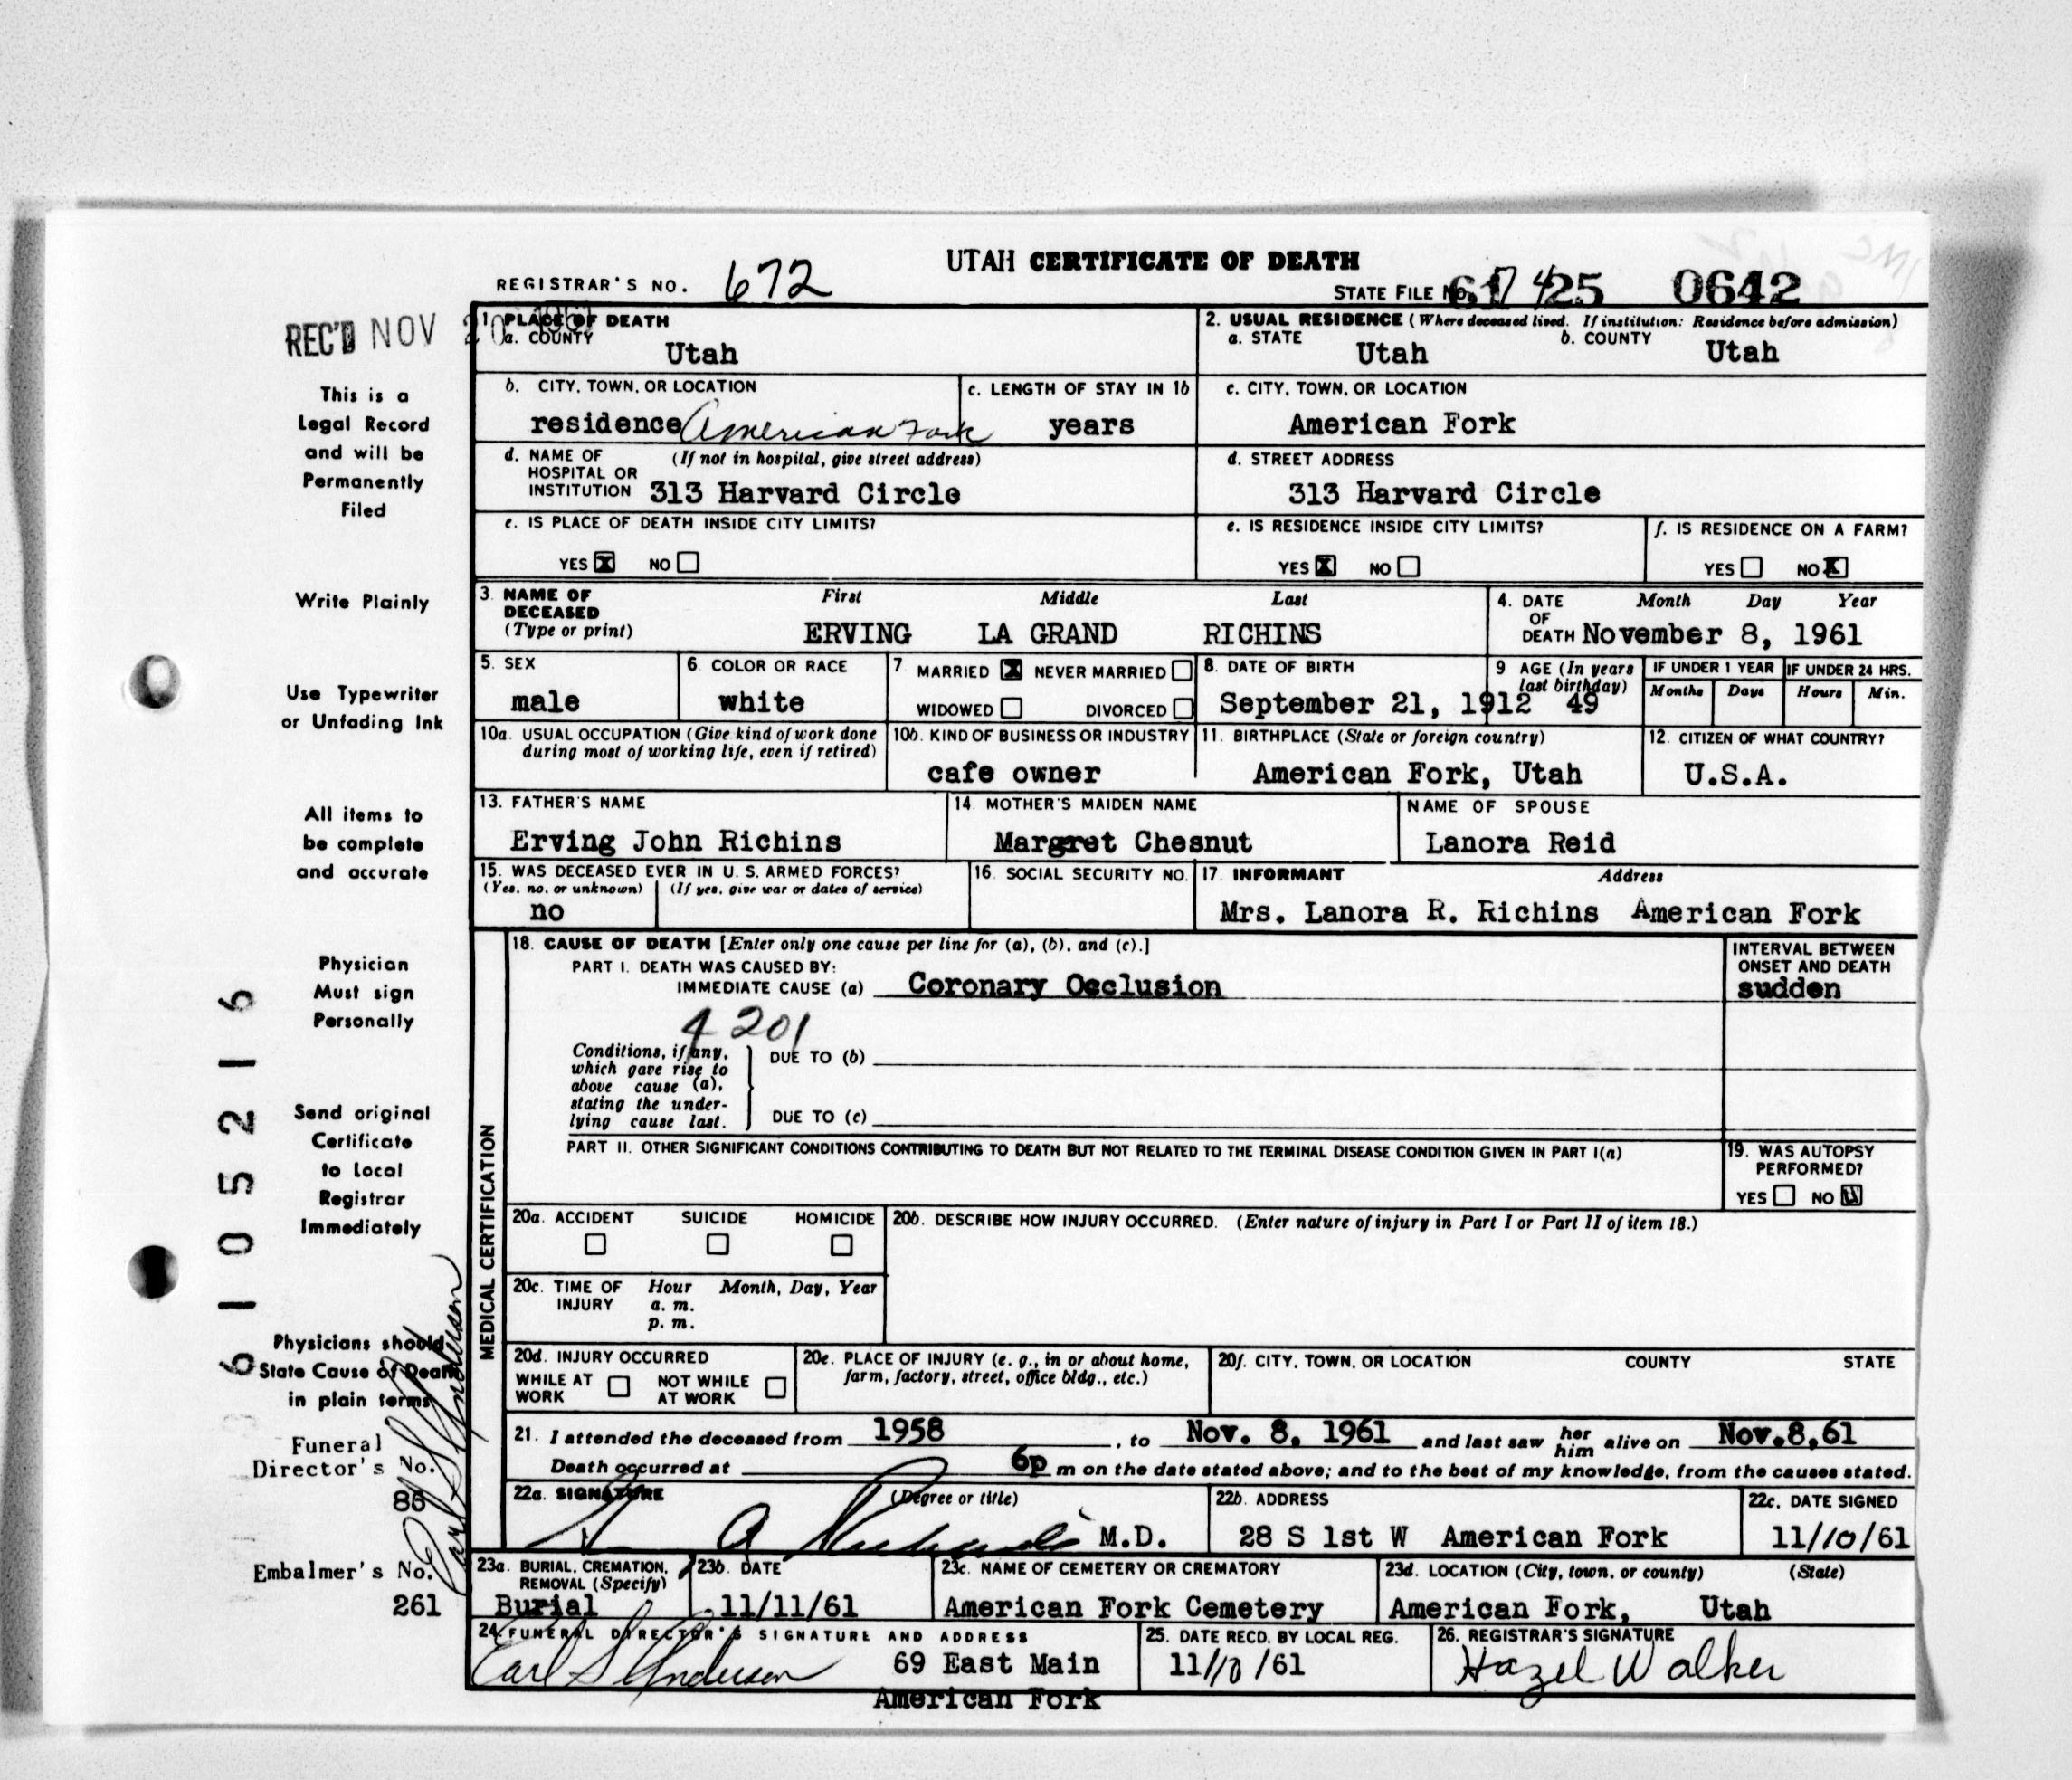 UTAH CERTIFICATE OF DEATH
REGISTRAR'S NO. 672
STATE FILE No. 61 25 0642
REC'D NOV 20
1. PLACE OF DEATH
a. COUNTY
Utah
2. USUAL RESIDENCE (Where deceased lived. If institution: Residence before admission)
a. STATE Utah b. COUNTY Utah
b. CITY, TOWN, OR LOCATION
residence American Fork
c. LENGTH OF STAY IN 1b
years
c. CITY, TOWN, OR LOCATION
American Fork
d. NAME OF HOSPITAL OR INSTITUTION (If not in hospital, give street address)
313 Harvard Circle
d. STREET ADDRESS
313 Harvard Circle
e. IS PLACE OF DEATH INSIDE CITY LIMITS?
YES X NO
e. IS RESIDENCE INSIDE CITY LIMITS?
YES X NO
f. IS RESIDENCE ON A FARM?
YES NO X
3. NAME OF DECEASED (Type or print)
First Middle Last
ERVING LA GRAND RICHINS
4. DATE OF DEATH Month Day Year
November 8, 1961
5. SEX
male
6. COLOR OR RACE
white
7. MARRIED X NEVER MARRIED
WIDOWED DIVORCED
8. DATE OF BIRTH
September 21, 1912
9 AGE (In years last birthday)
49
IF UNDER 1 YEAR
Months Days
IF UNDER 24 HRS.
Hours Min.
10a. USUAL OCCUPATION (Give kind of work done during most of working life, even if retired)
10b. KIND OF BUSINESS OR INDUSTRY
cafe owner
11. BIRTHPLACE (State or foreign country)
American Fork, Utah
12. CITIZEN OF WHAT COUNTRY?
U.S.A.
13. FATHER'S NAME
Erving John Richins
14. MOTHER'S MAIDEN NAME
Margret Chesnut
NAME OF SPOUSE
Lanora Reid
15. WAS DECEASED EVER IN U. S. ARMED FORCES?
(Yes, no, or unknown) (If yes, give war or dates of service)
no
16. SOCIAL SECURITY NO.
17. INFORMANT Address
Mrs. Lanora R. Richins American Fork
MEDICAL CERTIFICATION
18. CAUSE OF DEATH [Enter only one cause per line for (a), (b), and (c).]
PART I. DEATH WAS CAUSED BY:
IMMEDIATE CAUSE (a) Coronary Occlusion
INTERVAL BETWEEN ONSET AND DEATH
sudden
4201
Conditions, if any, which gave rise to above cause (a), stating the underlying cause last.
DUE TO (b)
DUE TO (c)
PART II. OTHER SIGNIFICANT CONDITIONS CONTRIBUTING TO DEATH BUT NOT RELATED TO THE TERMINAL DISEASE CONDITION GIVEN IN PART I(a)
19. WAS AUTOPSY PERFORMED?
YES NO
20a. ACCIDENT SUICIDE HOMICIDE
20b. DESCRIBE HOW INJURY OCCURRED. (Enter nature of injury in Part I or Part II of item 18.)
20c. TIME OF INJURY Hour Month, Day, Year
a. m.
p. m.
20d. INJURY OCCURRED
WHILE AT WORK NOT WHILE AT WORK
20e. PLACE OF INJURY (e. g., in or about home, farm, factory, street, office bldg., etc.)
20f. CITY, TOWN, OR LOCATION COUNTY STATE
21. I attended the deceased from 1958, to Nov. 8, 1961 and last saw her him alive on Nov.8,61
Death occurred at 6p m on the date stated above; and to the best of my knowledge, from the causes stated.
22a. SIGNATURE (Degree or title)
M.D.
22b. ADDRESS
28 S 1st W American Fork
22c. DATE SIGNED
11/10/61
23a. BURIAL, CREMATION, REMOVAL (Specify)
Burial
23b. DATE
11/11/61
23c. NAME OF CEMETERY OR CREMATORY
American Fork Cemetery
23d. LOCATION (City, town, or county) (State)
American Fork, Utah
24. FUNERAL DIRECTOR'S SIGNATURE AND ADDRESS
Earl S Anderson 69 East Main
American Fork
25. DATE RECD. BY LOCAL REG.
11/10/61
26. REGISTRAR'S SIGNATURE
Hazel Walker
This is a
Legal Record
and will be
Permanently
Filed
Write Plainly
Use Typewriter
or Unfading Ink
All items to
be complete
and accurate
Physician
Must sign
Personally
Send original
Certificate
to Local
Registrar
Immediately
Physicians should
State Cause of Death
in plain terms
Funeral
Director's No.
86
Embalmer's No.
261
Earl S Anderson
6105216